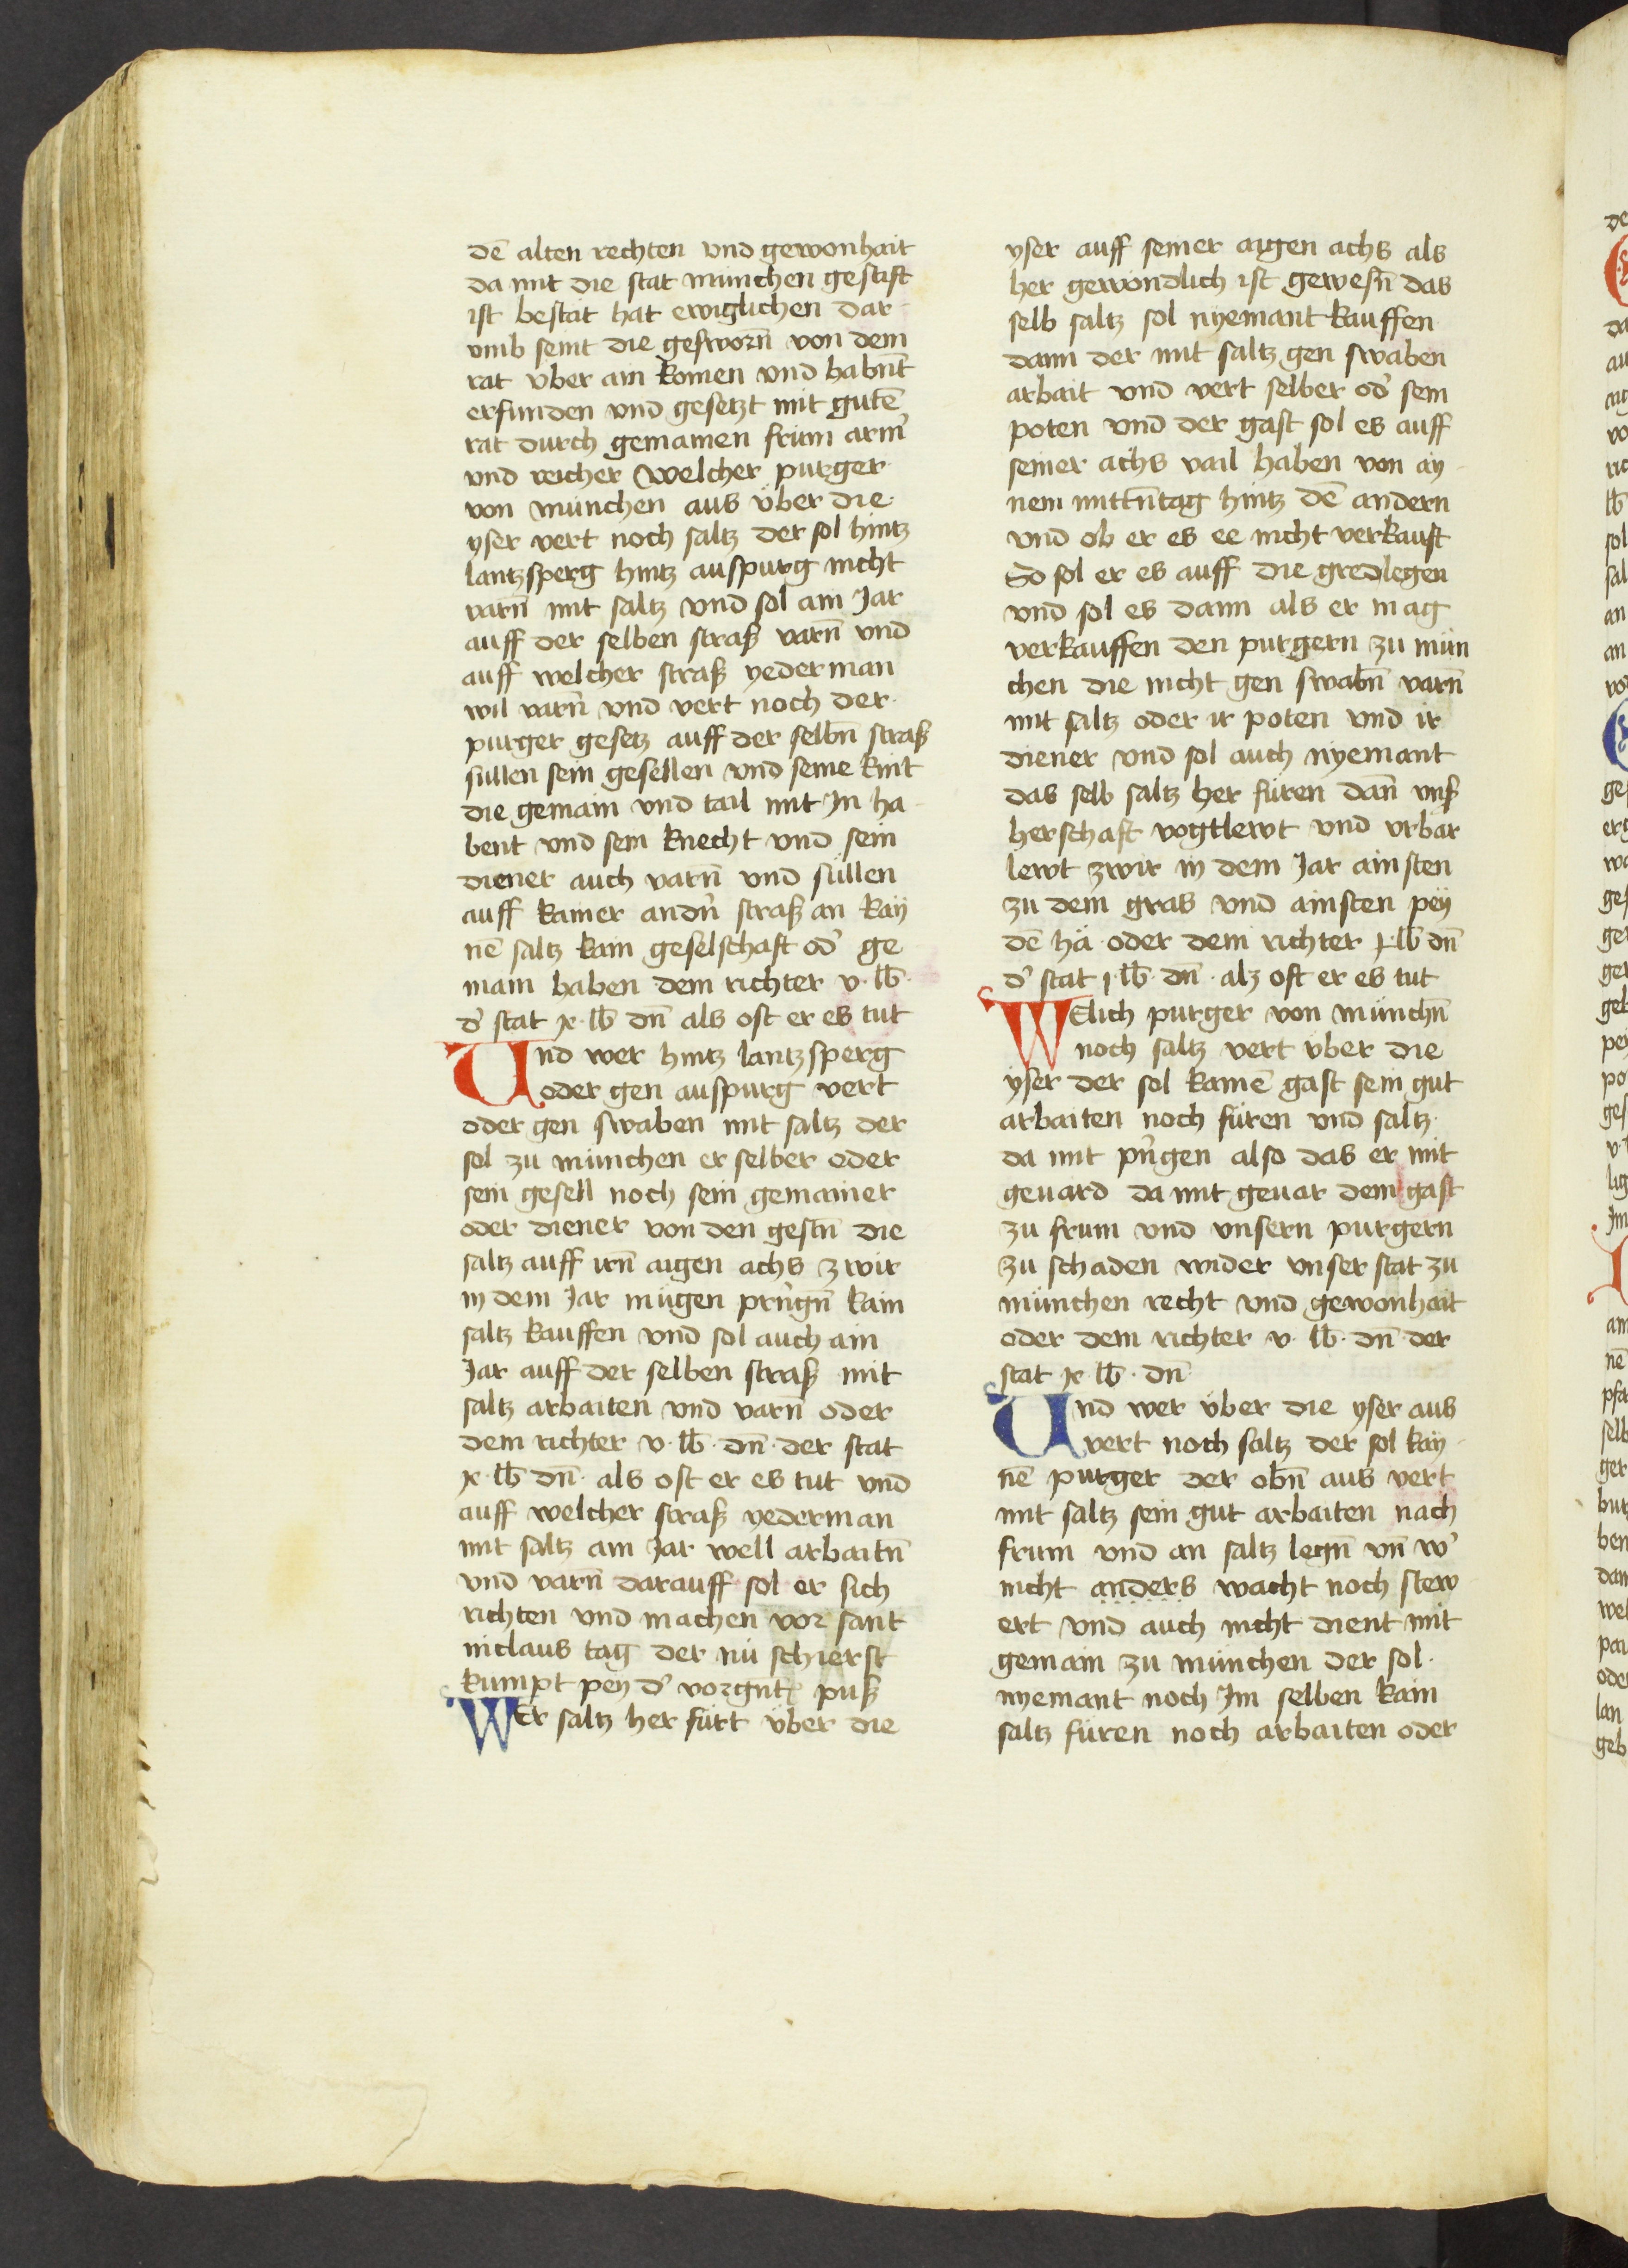 dē alten rechten vnd gewonhait
da mit die stat münchen gestift
ist bestät hat ewiglichen dar
vmb seint die gesworn̄ von dem
rat über ain komen vnd habn̄t
erfunden vnd gesetzt mit gutē
rat durch gemainen frum arm̉
vnd reicher Welcher purger
von münchen aus über die
yser vert noch saltz der sol hintz
lantzsperg hintz auspurg nicht
varn̄ mit saltz vnd sol ain Jar
auff der selben straß varn̄ vnd
auff welcher straß yederman
wil varn̄ vnd vert noch der
purger gesetz auff der selbn̄ straß
süllen sein gesellen vnd seine kint
die gemain vnd tail mit In ha
bent vnd sein knecht vnd sein
diener auch varn̄ vnd süllen
auff kainer andn̉ straß an kay
nē saltz kain geselschaft od̉ ge
main haben dem richter v · lb̄ ·
d̉ stat x · lb̄ dn̄ als oft er es tut
Vnd wer hintz lantzsperg
oder gen auspurg vert
oder gen swaben mit saltz der
sol zu münchen er selber oder
sein gesell noch sein gemainer
oder diener von den gestn̄ die
saltz auff irn̄ aigen achs zwir
in dem Jar mügen prīngn̄ kain
saltz kauffen vnd sol auch ain
Jar auff der selben straß mit
saltz arbaiten vnd varn̄ oder
dem richter v · lb̄ · dn̄ · der stat
x · lb̄ dn̄ · als oft er es tut vnd
auff welcher straß yederman
mit saltz ain Jar well arbaitn̄
vnd varn̄ darauff sol er sich
richten vnd machen vor sant
niclaus tag der nü schierst
kumpt pey d̉ vorgn̄tn̄ puß
WEr saltz her fürt über die
yser auff seiner aigen achs als
her gewöndlich ist gewesn̄ das
selb saltz sol nyemant kauffen
dann der mit saltz gen swaben
arbait vnd vert selber od̉ sein
poten vnd der gast sol es auff
seiner achs vail haben von ay
nem mittn̄tag hintz dē andern
vnd ob er es ee nicht verkauft
So sol er es auff die gredlegen
vnd sol es dann als er mag
verkauffen den purgern zu mün
chen die nicht gen swabn̄ varn̄
mit saltz oder ir poten vnd ir
diener vnd sol auch nyemant
das selb saltz her füren dan̄ vnß
herschaft vogtlewt vnd vrbar
lewt zwir in dem Jar ainsten
zu dem gras vnd ainsten pey
dē hä oder dem richter x lb̄ dn̄
d̉ stat j · lb̄ · dn̄ · alz oft er es tut
WElich purger von münchn̄
noch saltz vert über die
yser der sol kainē gast sein gut
arbaiten noch füren vnd saltz
da mit pn̉gen also das er mit
geuard da mit geuar dem gast
zu frum vnd vnsern purgern
zu schaden wider vnser stat zu
münchen recht vnd gewonhait
oder dem richter v · lb̄ · dn̄ · der
stat x · lb̄ · dn̄
Vnd wer über die yser aus
vert noch saltz der sol kay
nē purger der obn̄ aus vert
mit saltz sein gut arbaiten nach
frum vnd an saltz legn̄ vn̄ w̉
nicht anders wacht noch stew
ert vnd auch nicht dient mit
gemain zu münchen der sol
nyemant noch Im selben kain
saltz füren noch arbaiten oder